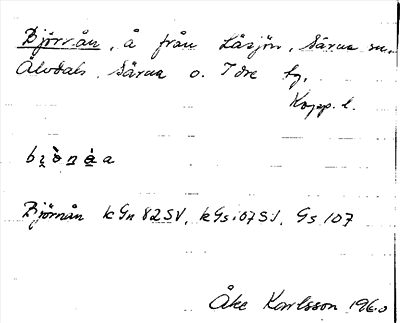 Björnån, å från Låsjön, Särna sn.
Älvdals, Särna o. Idre tg.
Kopp. l.
Björnån kGn 82SV, kGs107SJ, Gs 107
Åke Karlsson 1960